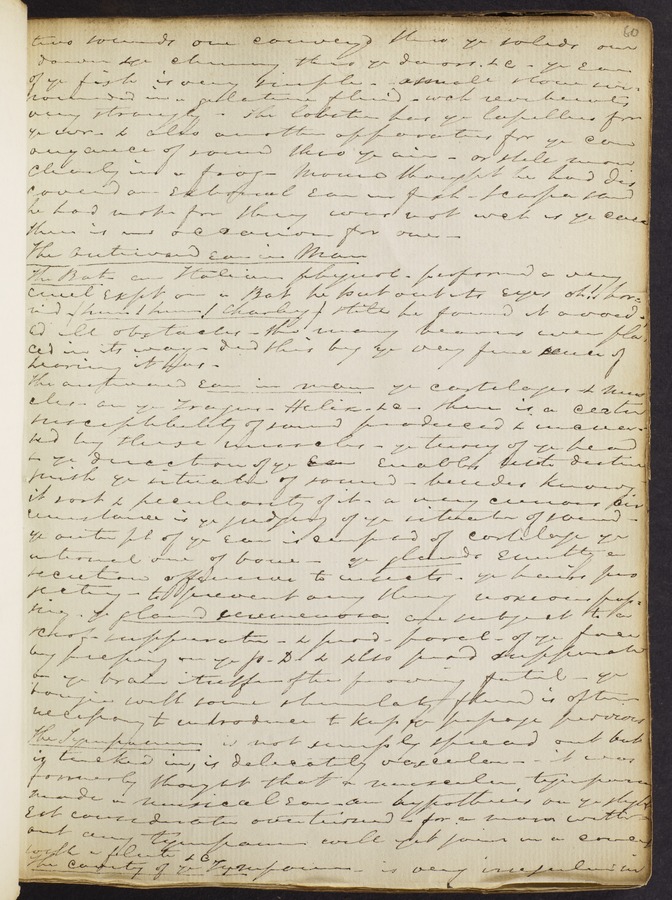 60
two sounds one conveyd thro ye solids our
of ye fish is very simple - a small stone sur-
rounded in a gelatine fluid - wch reverberates
very strongly - The lobster has ye lapillus for
& also another apparatus for ye con
veyance of sound thro ye air - or still more
clearly in a frog - Monro thought he had dis
coverd an External Ear in fish - Scarpa said
he had not for they was not wch is ye case
there is no occasion for one -
The outward Ear in Man
The Bat an Italian physiol. performd a very
cruel Expt on a Bat he put out its Eyes oh! hor-
rid still he found it avoid-
ed all obstacles - tho many beams were pla
ced in its way - did this by ye very fine sense of
hearing it has -
The outward Ear in man ye cartilages & mus
cles - an ye Tragus - Helix &c - there is a certn
susceptibility of sound produced & increa-
sed by these muscles - ye turng of ye head
& ye direction of ye Ear Enables us to distin
guish ye situatn of sound - besides knowg
it sort & peculiarity of it - a very curious cir
cumstance is ye judging of ye situatn of sound -
ye outer pt of ye Ear is composd of cartilage ye
internal one of bone - ye glands Emitting a
secretion offensive to insects - ye hairs pro
tecting - to prevent any thing noxious pass
ing - ye gland ceruminosa are subject to a
suppurate - & prod. paral. of ye face
by pressing on ye p. D. & also prod suppuratn
on ye brain itself often proving fatal - ye
bougie with some stimulatg fluid is often
necessary to introduce to keep ye passage pervious
The Tympanum is not simply spread out but
is tucked in, is delicately vascular - it was
formerly thought that a muscular tympanum
made a musical Ear - an hypothesis on ye slight
Est consideratn overturned for a man with
out any tympanum will yet join in a concert
with a flute &c
The cavity of ye Tympanum - is very irregular in